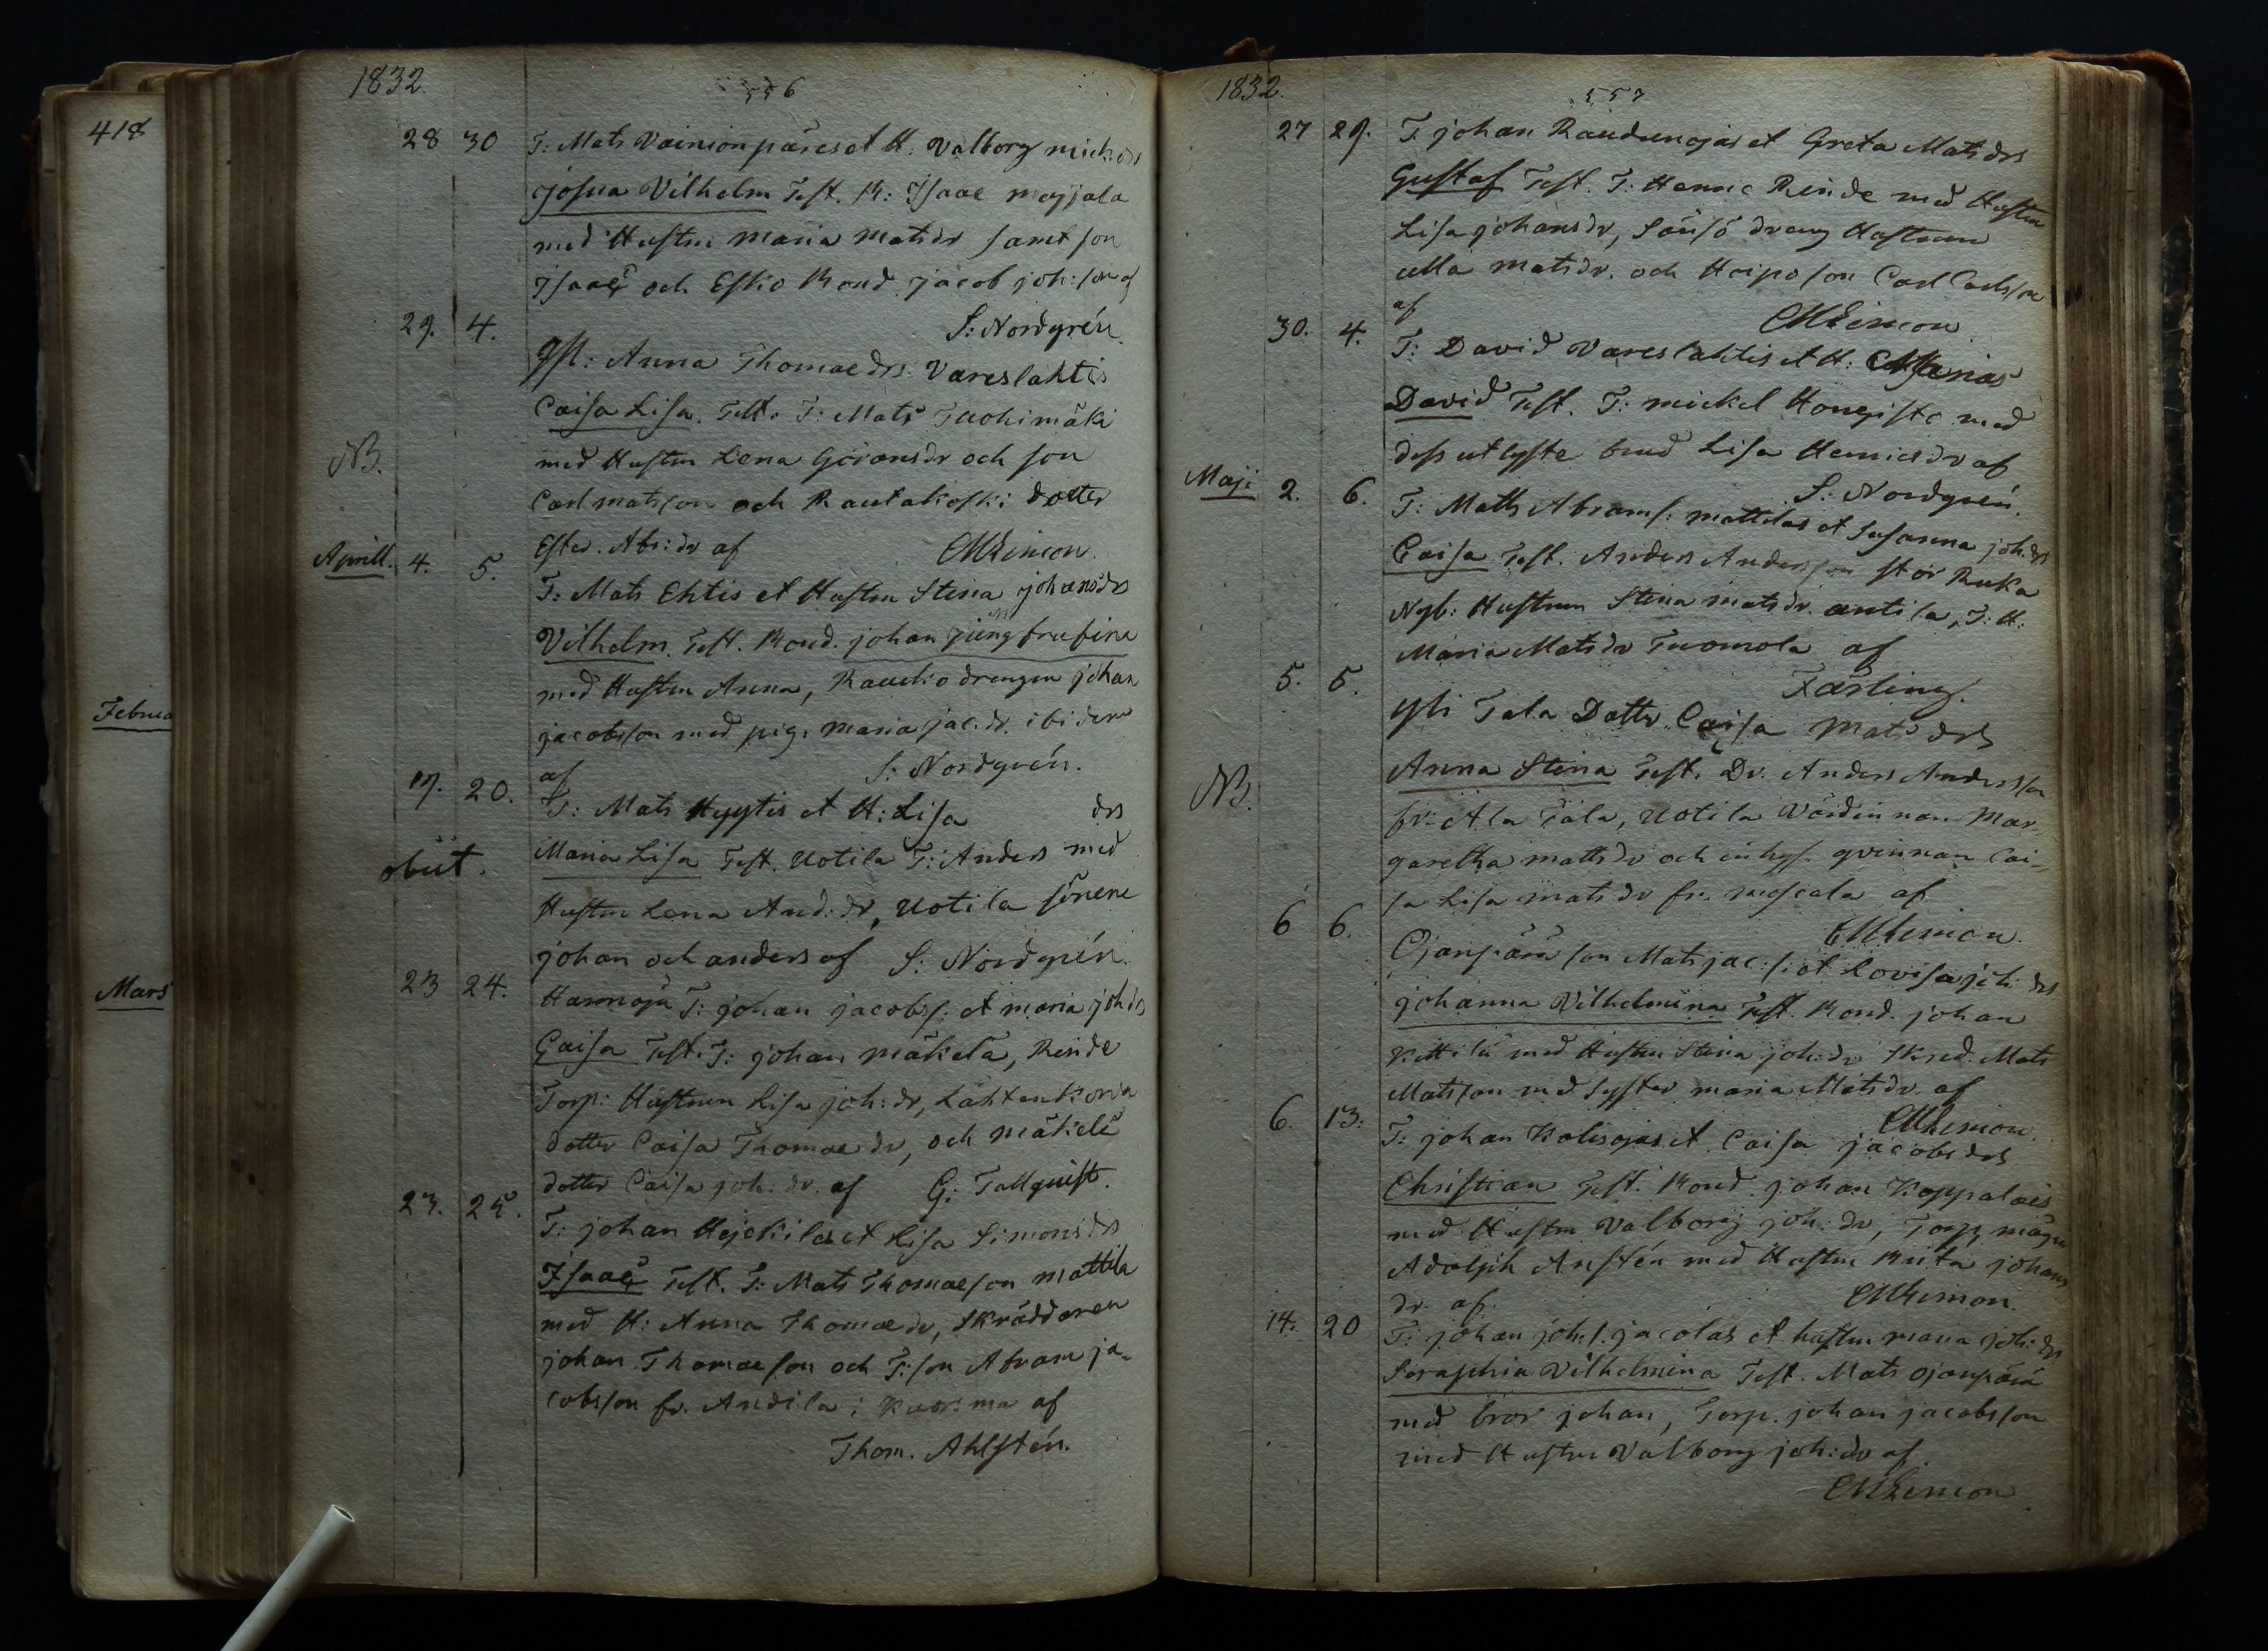 418
Februa
Mars
1832.
556
28 30 T: Mats Vainionpäres et H: Valborg mick:drs
Josua Vilhelm Test. R: Isaac mayjala
med Hustru Maria Matsdr samt son
Isaac och Esko Bond Jacob joh:son af
S: Nordgrén.
29. 4. Gst: Anna Thomaedrs Vareslahtis
Caisa Lisa. Test. T: Mats Tuohimäki
NB. med Hustru Lena Göransdr och son
Carl matsson och Rautakoski dotter
Ester Abr:dr af CMLimon.
Aprill. 4. 5. T: Mats Ehtis et Hustru Stina johansdrs
Vilhelm. Test. Bond. johan
med Hustru Anna, Raukio drengen johan
jacobsson med pig. maria jac:dr. ibidem
af S: Nordgrén.
17. 20. T: Mats Hyytis et H: Lisa drs
obiit. Maria Lisa Test. Uotila T: Anders med
Hustru Lena And:dr, Uotila sönerne
johan och anders af S: Nordgrén.
23 24. Harmoja T: johan jacobs: et maria joh:drs
Caisa Test. T: johan mäkelä, Rinde
Torp: Hustrun Lisa joh:dr, Lähtenkorva
dotter Caisa Thomaedr, och mäkelä
dotter Caisa joh:dr. af G: Tallquist.
23. 25. T: johan Hejckilas et Lisa Simonsdrs
Isaac Test. T: Mats Thomaeson mattila
med H: Anna Thomaedr, Skräddaren
johan Thomaeson och T:son Abram ja-
cobsson fr. Andila i Kuorsma af
Thom. Ahlstén.
1832.
557
27 29. T. johan Raudunojas et Greta Matsdrs
Gustaf Test. T: Henric Rinde med Hustru
Lisa johansdr, dreng Hustrun
ulla matsdr. och Heiposon Carl Carlsson
af CMLimon
30. 4. T: David Vareslahtis et H:
David Test. T: mickel Hongisto med
dess utlyste brud Lisa Henricsdr af
S: Nordgrén.
Maji 2. 6. T: Matts Abrams: mattilas et Susanna joh:drs
Caisa Test. Anders Andersson stor Ruka
Nyb: Hustrun Stina matsdr. antila, T: H:
Maria Matsdr Tuomola af
Färling.
5. 5. Yli Tala Dottr. Caisa Matsdrs
Anna Stina Test. Dr. Anders Andersson
NB. fr: Ala Tala, Uotila Värdinnan Mar-
garetha mattsdr och inhys. qvinnan Cai-
sa Lisa matsdr fr. moscala af
CMLimon.
6 6. Ojanpärä son Mats jac:s: et Lovisa joh:drs
johanna Vilhelmina Test. Bond. johan
Kittilä med Hustru Stina joh:dr Skred. Mats
Matsson med Syster maria Matsdr. af
CMLimon.
6. 13. T: johan Kohiojas et Caisa jacobsdrs
Christian Test. Bond. johan Koppalais
med Hustru Valborg joh:dr, Torp. mågen
Adolph Anstén med Hustru Brita johans
dr. af. CMLimon.
14. 20 T: johan joh:s. jacolas et hustru maria joh:drs
Seraphia Vilhelmina Test. Mats ojanpärä
med bror johan, Torp. johan jacobsson
med Hustru Valborg joh:dr af
CMLimon